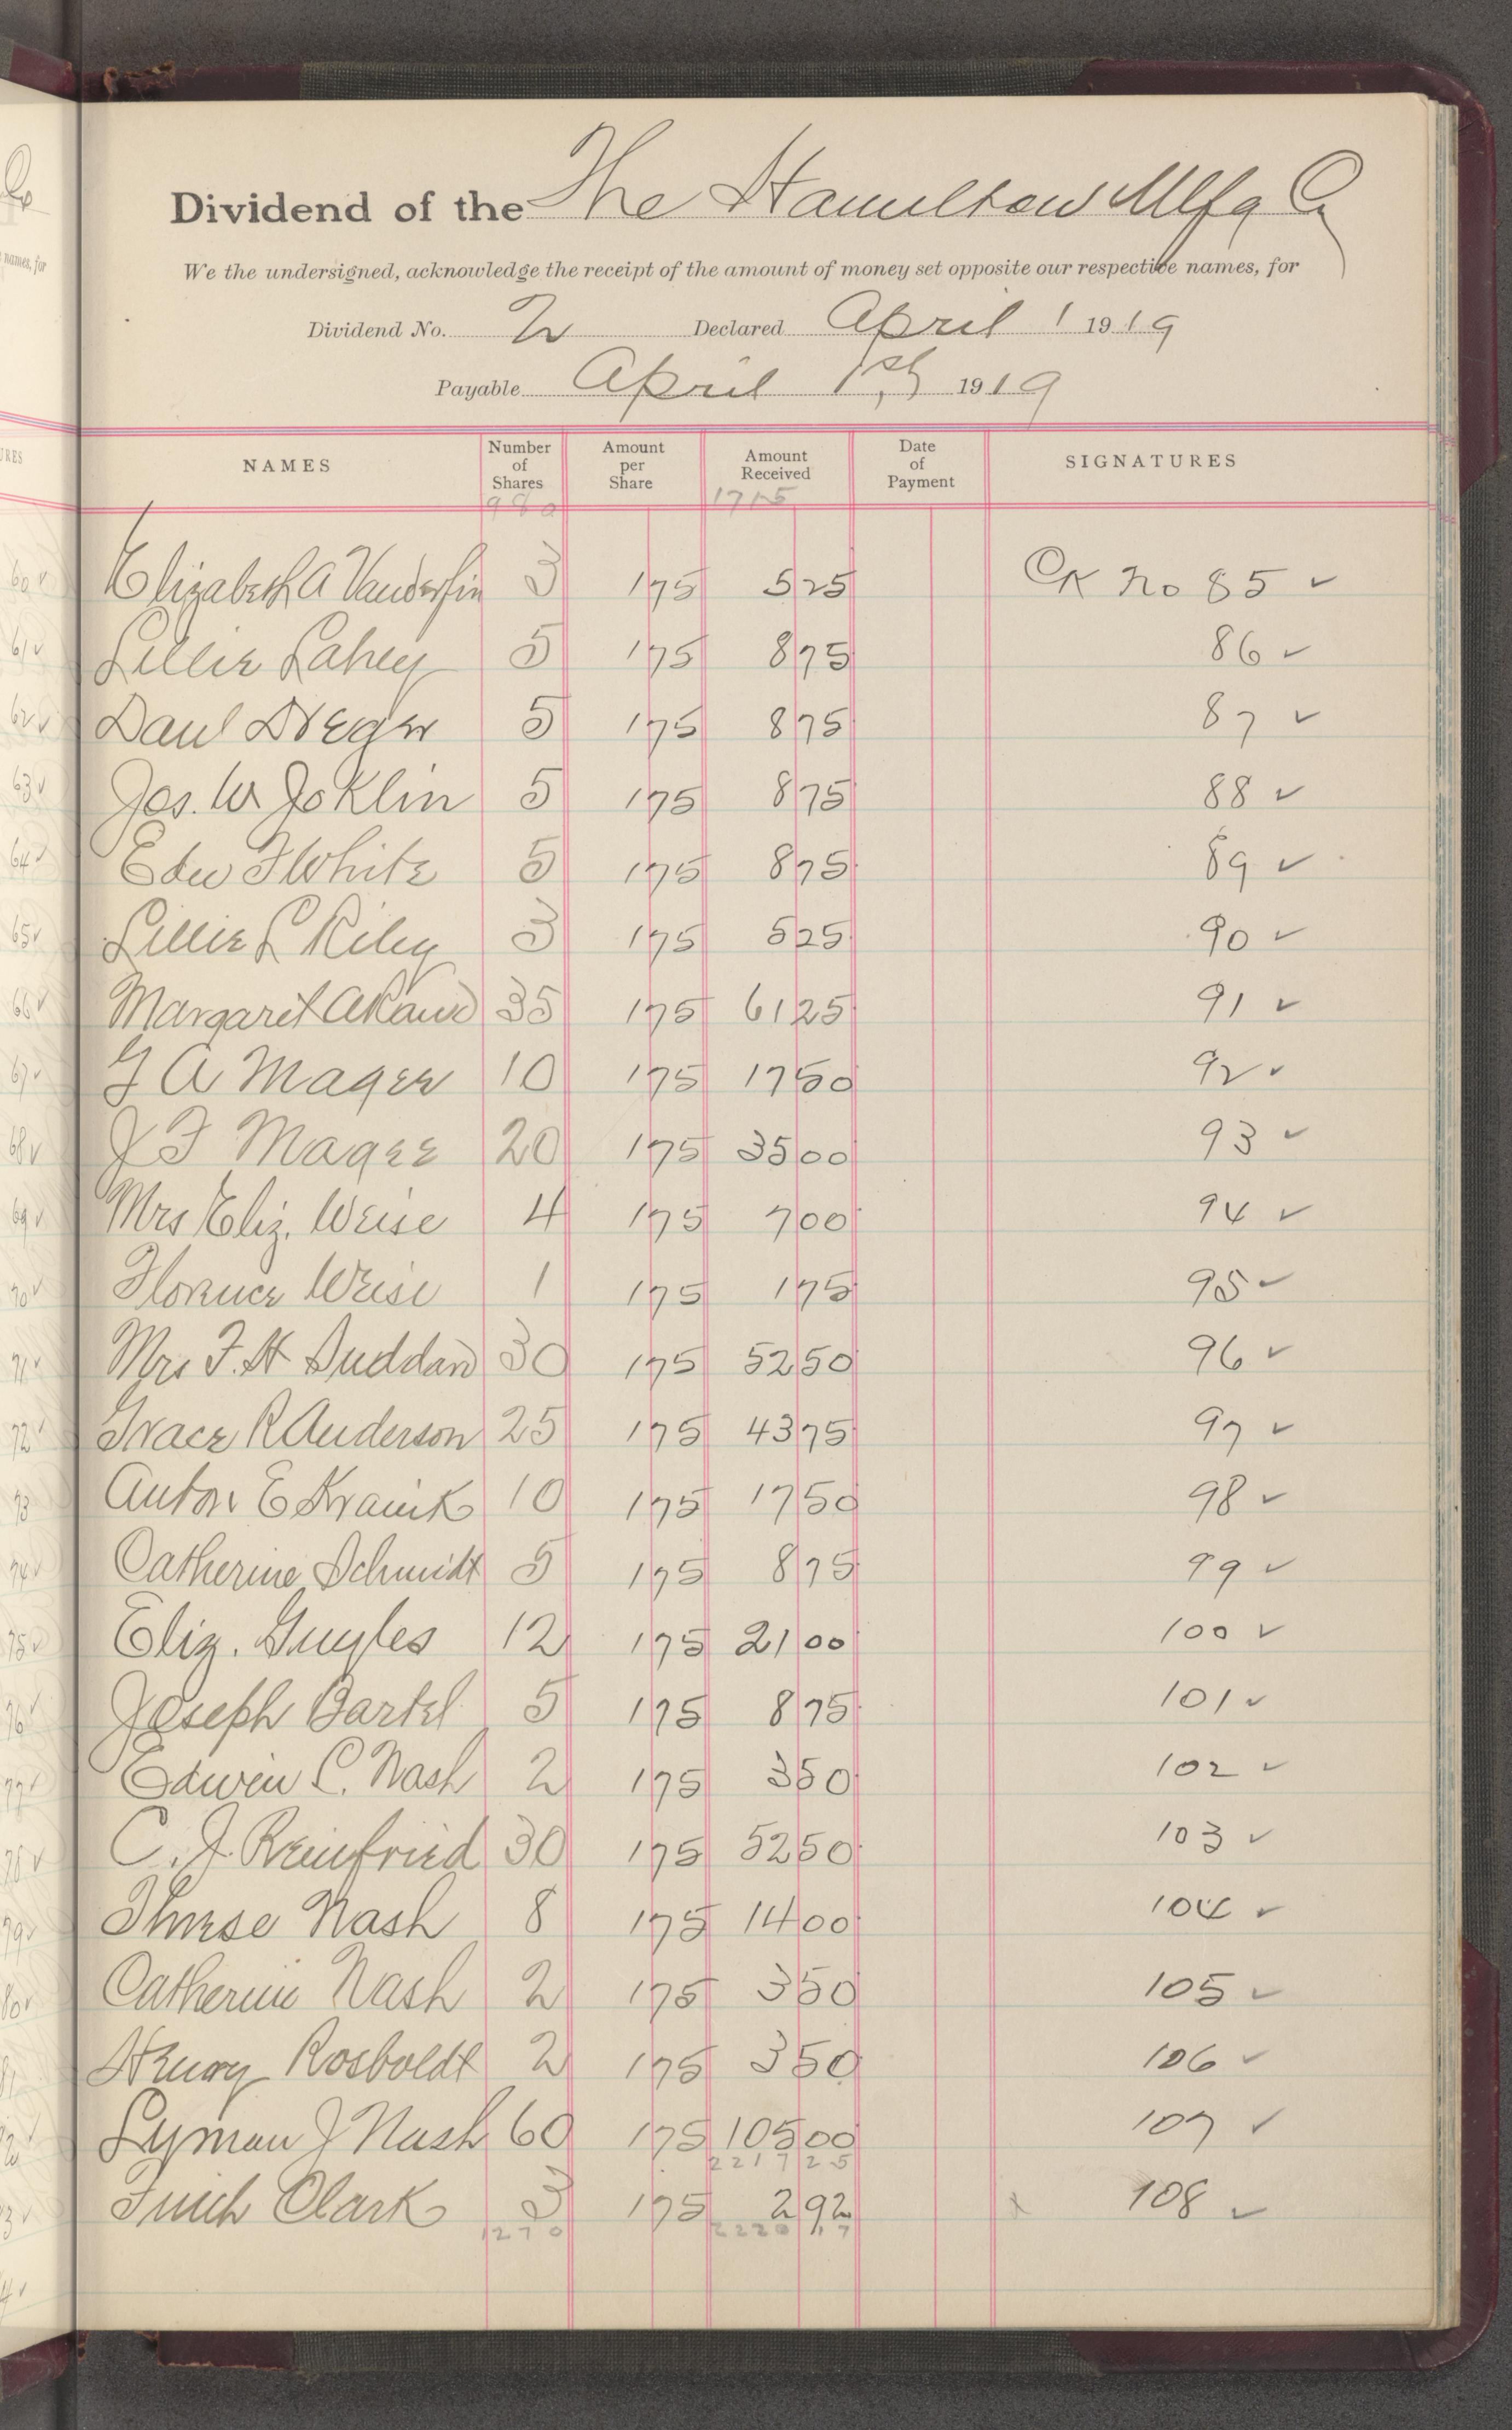 Dividend of the The Hamilton Mfg Co
We the undersigned, acknowledge the receipt of the amount of money set opposite our respective names, for
Dividend No. 2 Declared April 1 1919
Payable April 1st 1919
NAMES Number of Shares Amount per Share Amount Received Date of Payment SIGNATURES
980 1715
Elizabeth A 3 1 75 5 25 Ck No 85 ✓
Lillie Lahey 5 1 75 8 75 86 ✓
Paul Dreger 5 1 75 8 75 87 ✓
Jos. W. Joklin 5 1 75 8 75 88 ✓
Edw F White 5 1 75 8 75 89 ✓
Lillie L Riley 3 1 75 5 25 90 ✓
Margaret A 35 1 75 61 25 91 ✓
G A Magee 10 1 75 17 50 92 ✓
J F Magee 20 1 75 35 00 93 ✓
Mrs Eliz. Weise 4 1 75 7 00 94 ✓
Florence Weise 1 1 75 1 75 95 ✓
Mrs F. H Suddard 30 1 75 52 50 96 ✓
Grace R Anderson 25 1 75 43 75 97 ✓
Anton E Kranik 10 1 75 17 50 98 ✓
Catherine Schmidt 5 1 75 8 75 99 ✓
Eliz. Guyles 12 1 75 21 00 100 ✓
Joseph Bartel 5 1 75 8 75 101 ✓
Edwin C. Nash 2 1 75 3 50 102 ✓
C. J. Reinfried 30 1 75 52 50 103 ✓
Therese Nash 8 1 75 14 00 104 ✓
Catherine Nash 2 1 75 3 50 105 ✓
Henry Rosboldt 2 1 75 3 50 106 ✓
Lyman J Nash 60 1 75 105 00 107 ✓
2217 25
Finch Clark 3 1 75 2 92 x 108 ✓
1270 2220 17